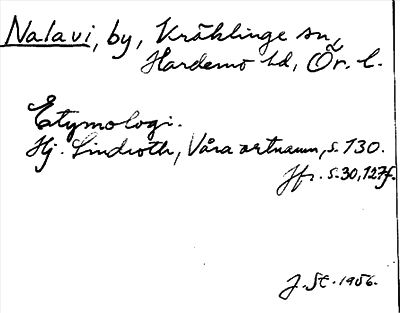 Nalavi, by, Kräcklinge sn,
Hardemo hd, Ör. l.
Etymologi.
Hj. Lindroth, Våra ortnamn, s. 130.
Jfr. s. 30, 127f.
J. St. 1956.